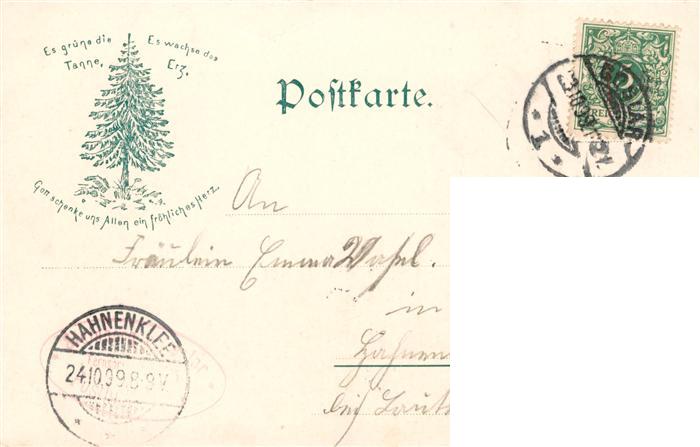 Es grüne die Tanne,
Es wachse das Erz.
Gott schenke uns Allen ein fröhliches Herz.
Postkarte.
5
GOSLAR
* 1 *
An
Fräulein Emma
in
Hahnen
bei Laut
HAHNENKLEE
24.10.99.8-9V.